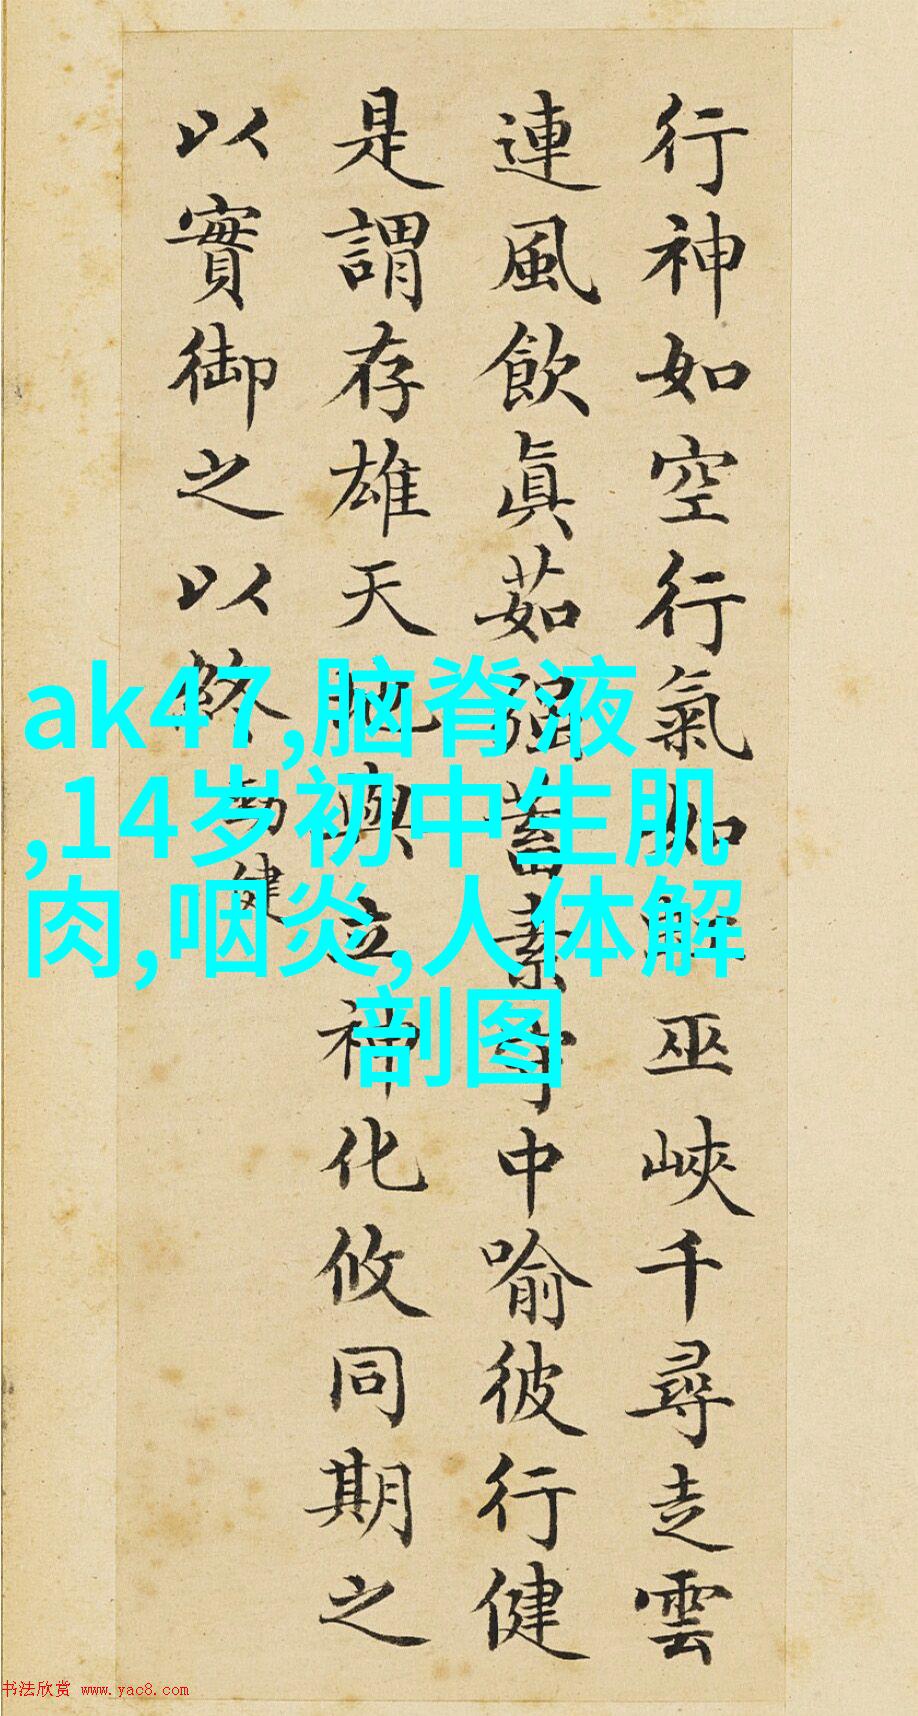 行神如空行氣如虹巫峽千尋走雲
連風飲眞茹强蓄素守中喻彼行健
是謂存雄天地與立神化攸同期之
以實御之以終
勁健
ak47,脑脊液
,14岁初中生肌
肉,咽炎,人体解
剖图
书法欣赏 www.yac8.com